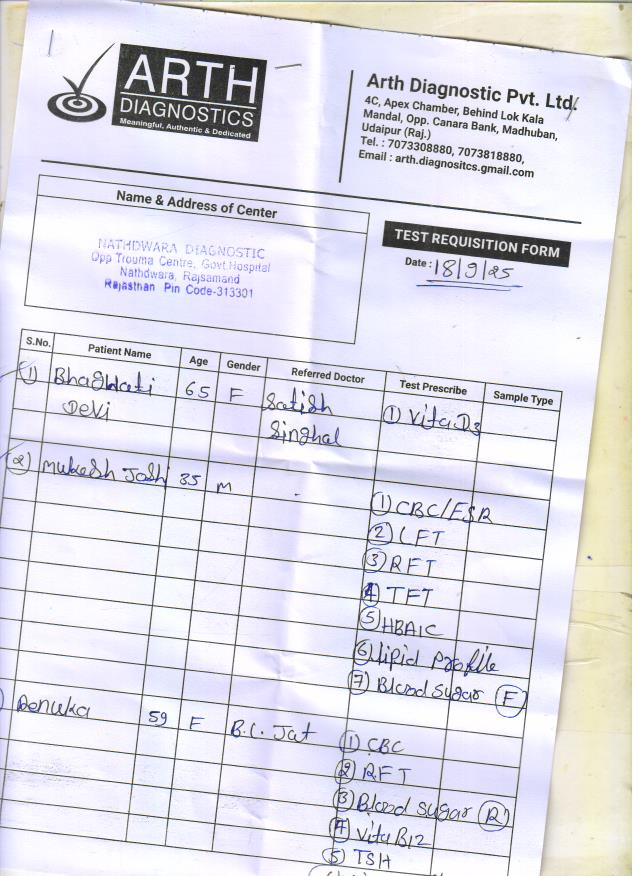 ARTH
DIAGNOSTICS
Meaningful, Authentic & Dedicated
Arth Diagnostic Pvt. Ltd.
4C, Apex Chamber, Behind Lok Kala
Mandal, Opp. Canara Bank, Madhuban,
Udaipur (Raj.)
Tel. : 7073308880, 7073818880,
Email : arth.diagnositcs.gmail.com
Name & Address of Center
NATHDWARA DIAGNOSTIC
Opp Trouma Centre, Govt.Hospital
Nathdwara, Rajsamand
Rajasthan Pin Code-313301
TEST REQUISITION FORM
Date : 18/9/25
S.No. Patient Name Age Gender Referred Doctor Test Prescribe Sample Type
(1) Bhagwati 65 F Satish (1) Vita D3
Devi Singhal
(2) Mukesh Joshi 35 M
(1) CBC/ESR
(2) LFT
(3) RFT
(4) TFT
(5) HBA1C
(6) Lipid Profile
(7) Blood Sugar (F)
Renuka 59 F B.C. Jat (1) CBC
(2) RFT
(3) Blood Sugar (R)
(4) Vita B12
(5) TSH